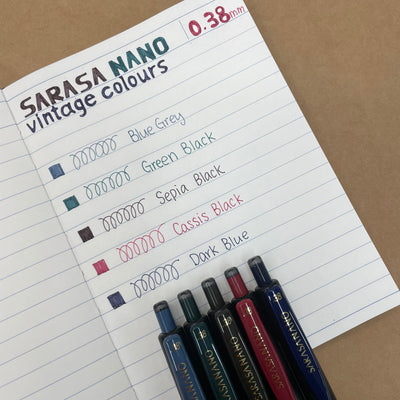 SARASA NANO
0.38mm
vintage colours
Blue Grey
Green Black
Sepia Black
Cassis Black
Dark Blue
SARASA NANO
SARASA NANO
SARASA NANO
SARASA NANO
SARASA NANO